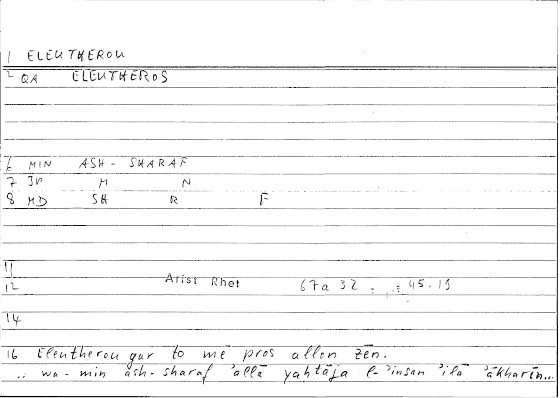 1 ELEUTHEROU
2 QA ELEUTHEROS
6 MIN ASH-SHARAF
7 JP M N
8 MD SH R F
11
12 Arist Rhet 67a 32 : 45.19
14
16 Eleutherou gar to mē pros allon zēn.
.. wa-min ash-sharaf 'allā yahtāja l-'insan 'ilā 'ākharīn...